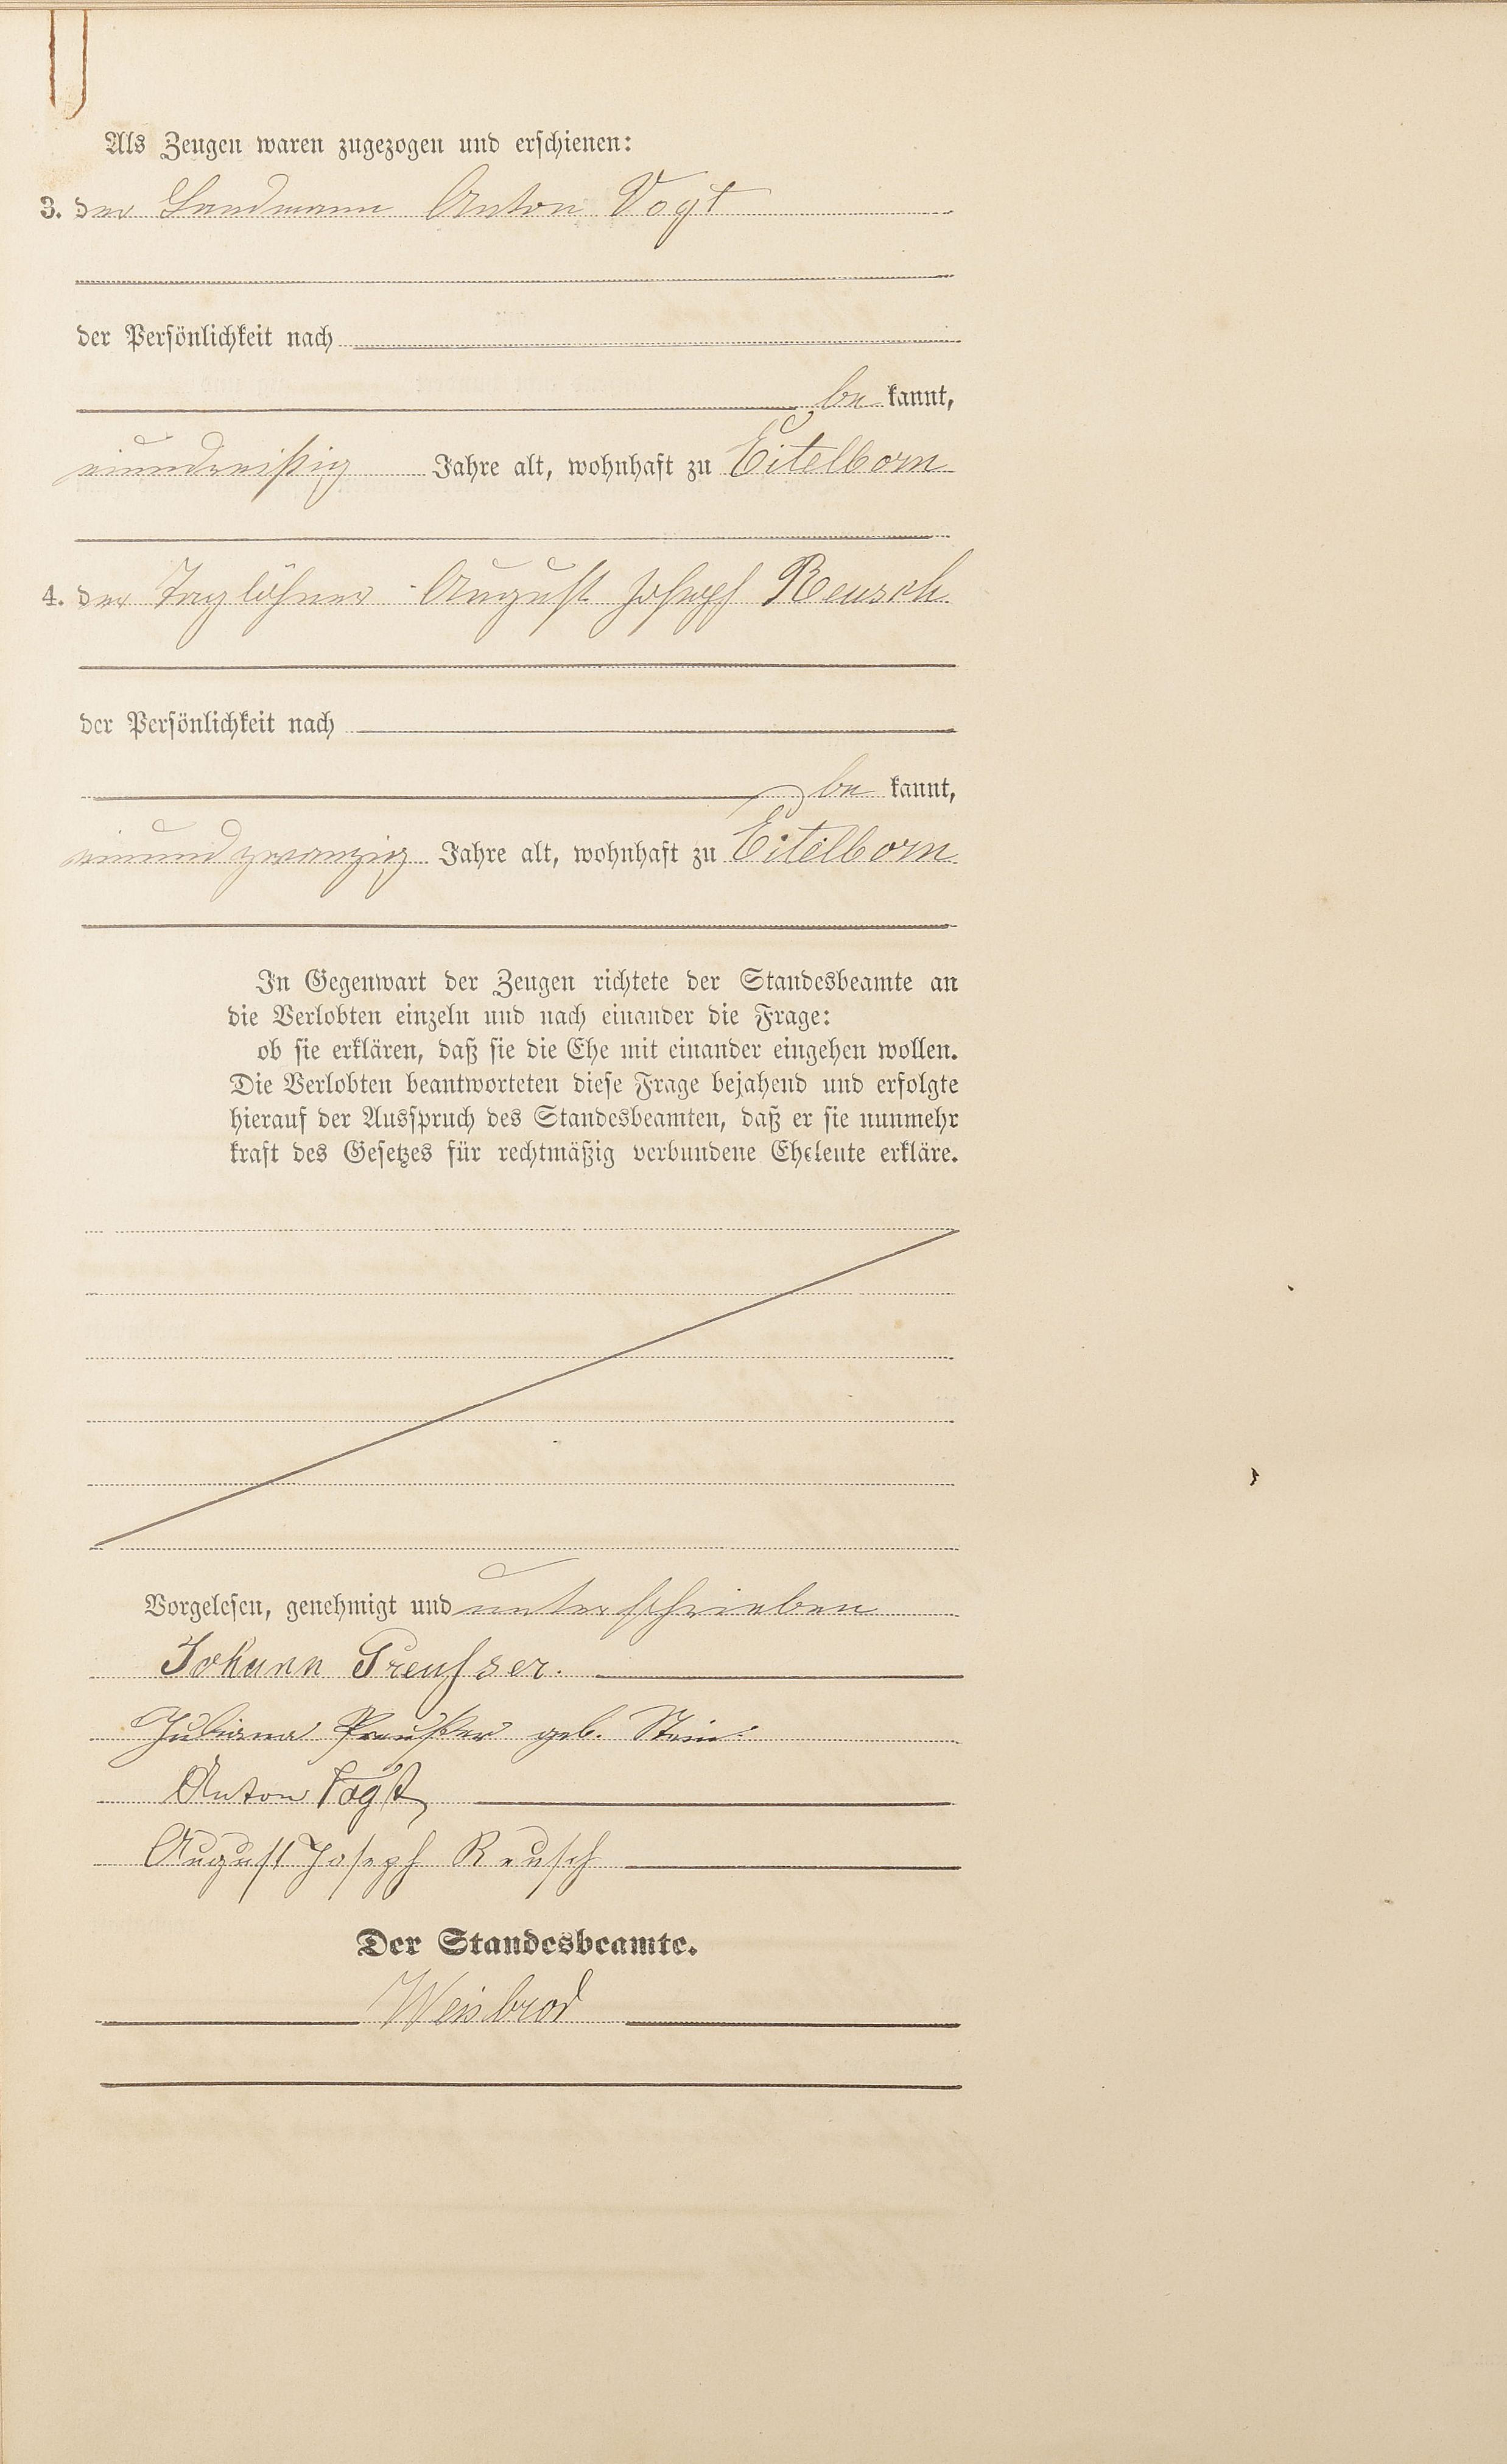 Als Zeugen waren zugezogen und erschienen:
3. der Landmann Anton Vogt
der Persönlichkeit nach
be kannt,
einundreißig Jahre alt, wohnhaft zu Eitelborn
4. der Taglöhner August Josepf Reusch
der Persönlichkeit nach
be kannt,
einundzwanzig Jahre alt, wohnhaft zu Eitelborn
In Gegenwart der Zeugen richtete der Standesbeamte an
die Verlobten einzeln und nach einander die Frage:
ob sie erklären, daß sie die Ehe mit einander eingehen wollen.
Die Verlobten beantworteten diese Frage bejahend und erfolgte
hierauf der Ausspruch des Standesbeamten, daß er sie nunmehr
kraft des Gesetzes für rechtmäßig verbundene Eheleute erkläre.
Vorgelesen, genehmigt und unterschrieben
Johann Preusser.
Juliana Preußer geb. Stein.
Anton Vogt
August Joseph Reusch
Der Standesbeamte.
Weisbrod